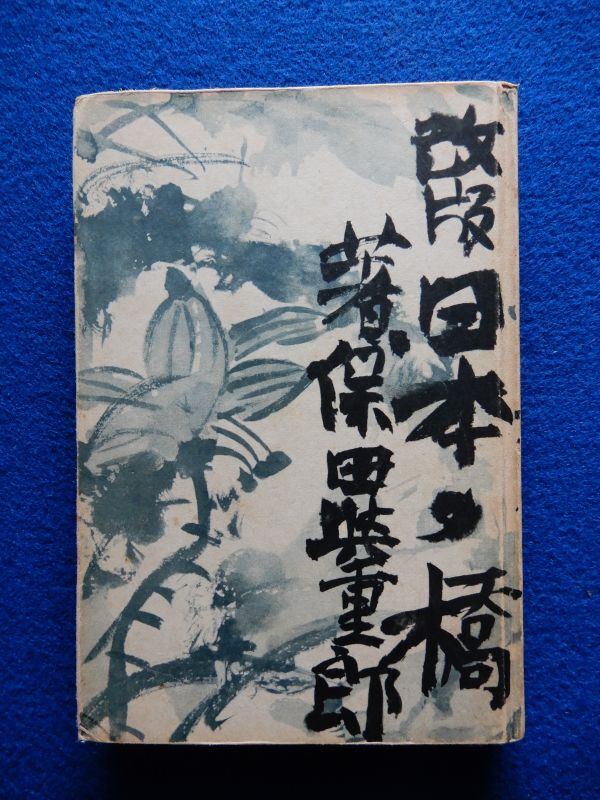 改版日本の橋
著保田與重郎